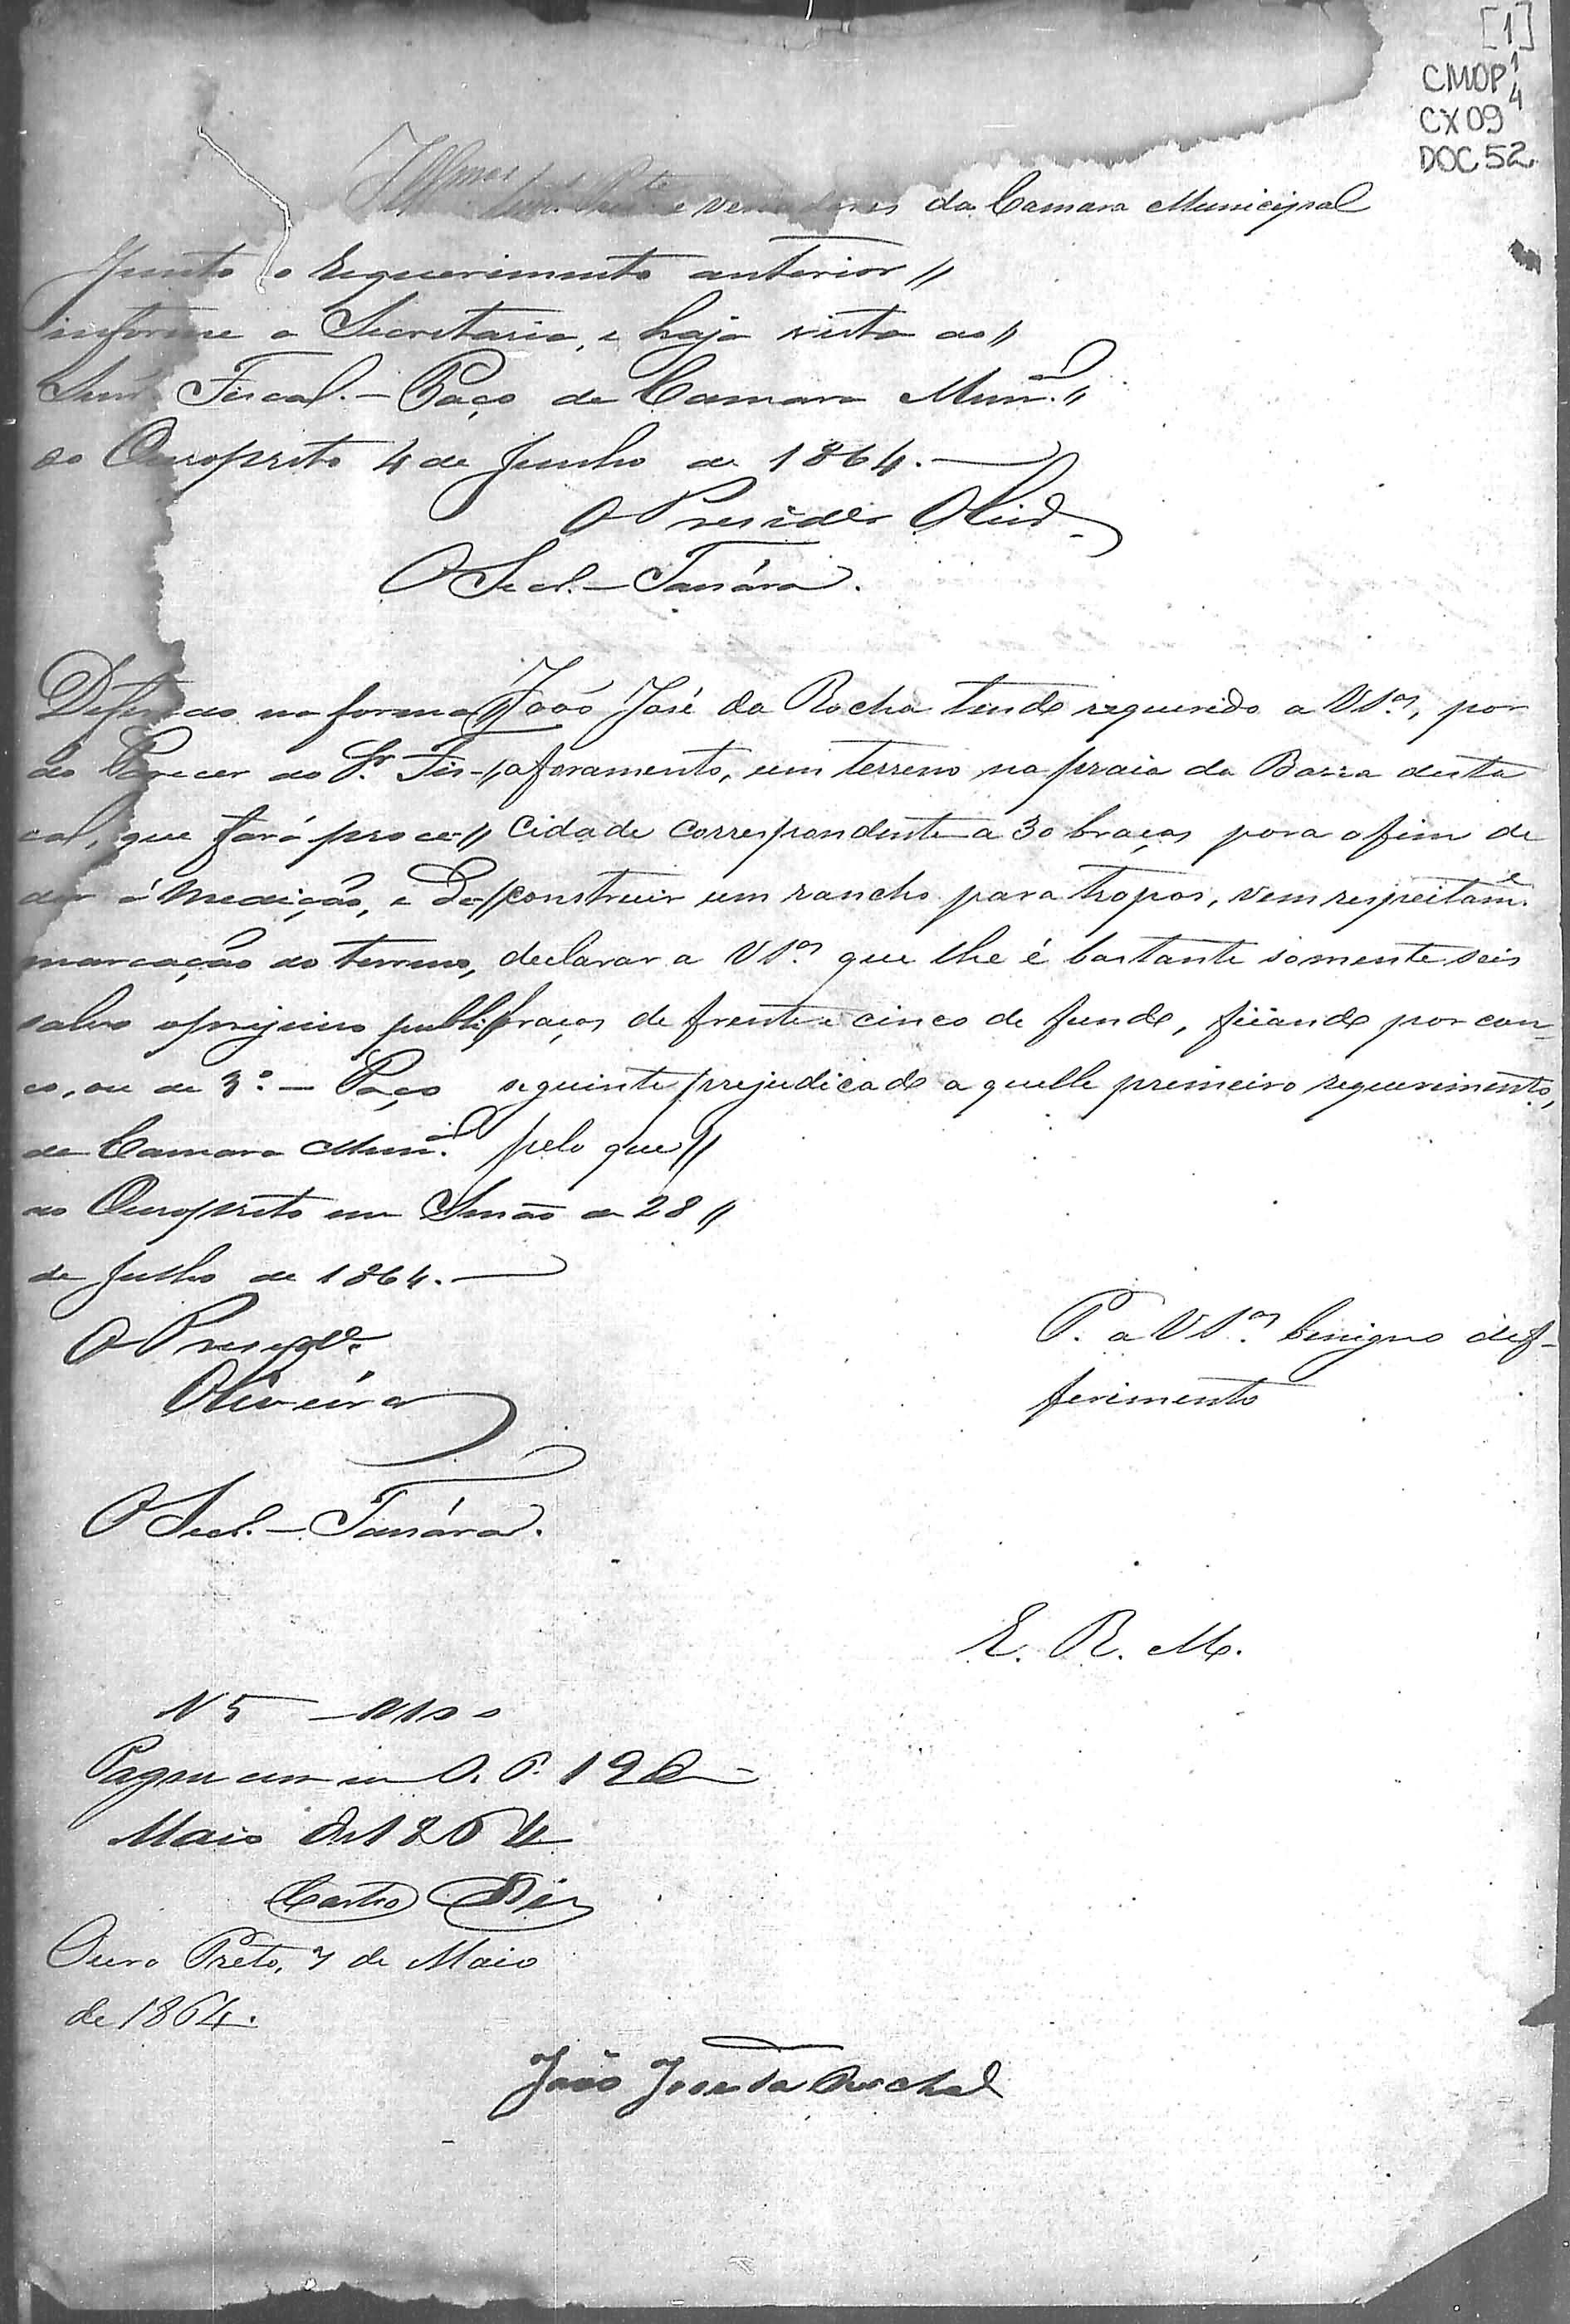 [1]
CMOP 1/4
CX 09
DOC 52
Illmos Snrs. Preste e vereadores da Camara Municipal
Junto o requerimento anterior //
informe o Secretario, e haja vista ao //
Senr. Fiscal. - Paço da Camara Munal. //
do Ouropreto 4 de Junho de 1864. —
O Preside
O Secl. - 
Deferido na forma //
do Parecer do Sr. Fis- //
cal, que fará proce- //
der á medição, e De- //
marcação do terreno,
salvo o prejuizo publi //
co, ou de 3º. - Paço
da Camara Munal.
do Ouropreto em Sessão de 28 //
de Julho de 1864. —
O Preside.
Oliveira
O Secl. - 
João José da Rocha tendo requerido a VSas, por
aforamento, um terreno na praia da Barra desta
Cidade correspondente a 30 braças para o fim de
construir um rancho para tropas, vem respeitame.
declarar a VSas que lhe é bastante somente seis
braças de frente e cinco de fundo, ficando por con-
seguinte prejudicado aquelle primeiro requerimento,
pelo que //
P. a VSas benigno def-
ferimento
E. R. M.
N 5 —
Pagou um O. P. 12 de
Maio de 1864
Castro
Ouro Preto, 7 de Maio
de 1864.
João Jose da Rocha